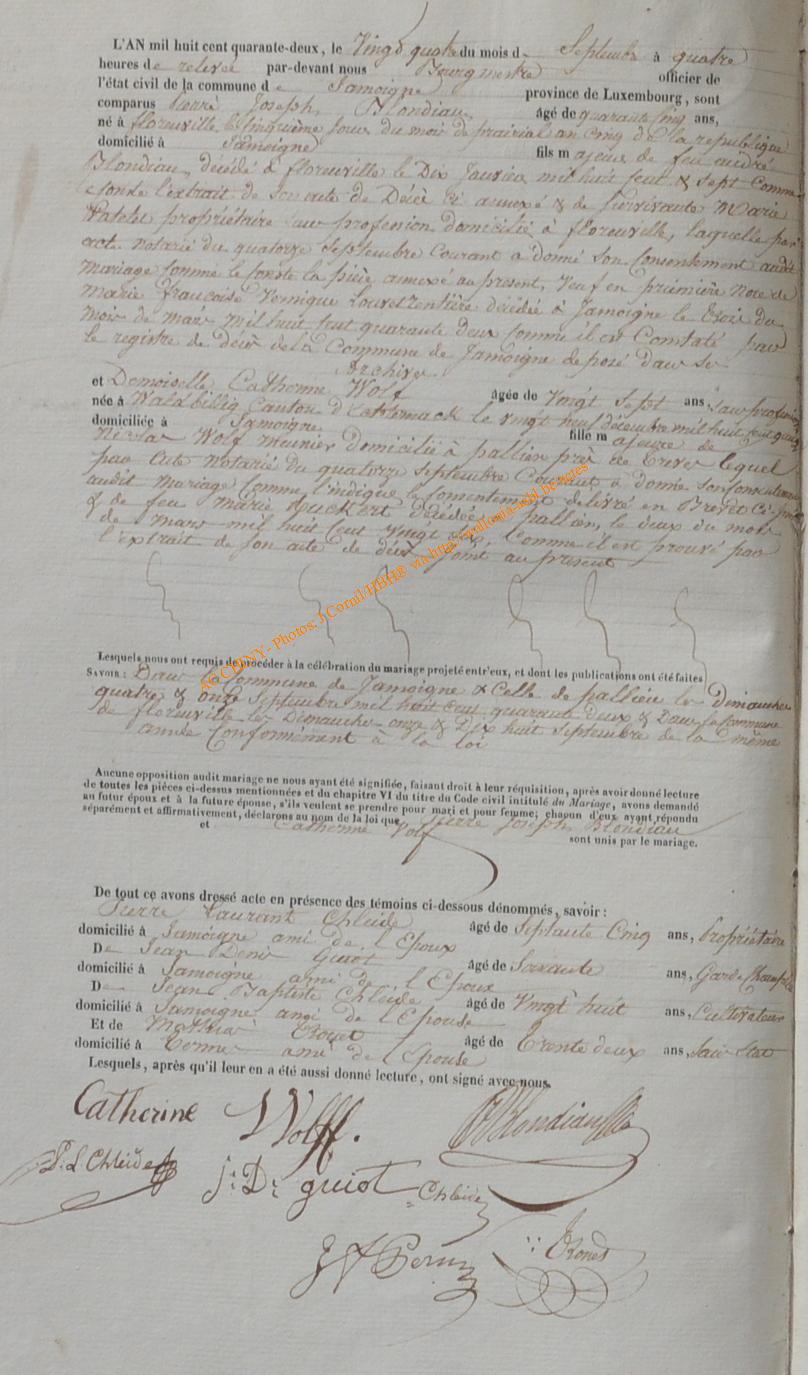 L'AN mil huit cent quarante-deux, le Vingt quatre du mois d e Septembre à quatre
heures de relevée par-devant nous Bourgmestre officier de
l'état civil de la commune d e Jamoigne province de Luxembourg, sont
comparus Pierre Joseph Blondiau âgé de quarante cinq ans,
né à florenville le cinquième jour du mois de prairial an cinq de la republique
domicilié à Jamoigne fils m ajeur de feu andré
Blondiau, décédé à florenville le Dix Janvier mil huit cent & sept comme
conste l'extrait de son acte de Décè ci annexé & de Survivante Marie
Watelet propriétaire sans profession domicilié à florenville, laquelle par
act. notarié du quatorze Septembre Courant a donné son Consentement audit
mariage comme le conste la pièce annexé au present, Veuf en prémière noce de
Marie françoise décédée à Jamoigne le trois du
mois de mars mil huit cent quarante deux comme il est Constaté par
le registre de décès de la Commune de Jamoigne deposé dans se
Archives
et Demoiselle Catherine Wolf âgée de Vingt Sept ans, Sans profession
née à Waldbillig Canton d'Echternack le vingt neuf décembre mil huit cent quinze
domiciliée à Jamoigne fille m ajeure de
Nicolas Wolf Meunier domicilié à pallien près de Treves lequel
par acte notarié du quatorze Septembre Courant a donné son Consentement
audit mariage comme l'indique le consentement delivré en Brevêt Ci-joint
& de feu Marie décédée à pallien, le deux du mois
de mars mil huit cent vingt six, Comme il est prouvé par
l'extrait de son acte de décès joint au present
ACCEDNY - Photos: J.Cornil/HBH® via http://wallonia-asbl.be/actes
Lesquels nous ont requis de procéder à la célébration du mariage projeté entr'eux, et dont les publications ont été faites
SAVOIR : Dans la Commune de Jamoigne & Celle de pallien les Dimanches
quatre & onze Septembre mil huit cent quarante deux & Dans la Commune
de florenville les Dimanche onze & Dix huit Septembre de la même
année Conformément à la loi
Aucune opposition audit mariage ne nous ayant été signifiée, faisant droit à leur réquisition, après avoir donné lecture
de toutes les pièces ci-dessus mentionnées et du chapitre VI du titre du Code civil intitulé du Mariage, avons demandé
au futur époux et à la future épouse, s'ils veulent se prendre pour mari et pour femme; chacun d'eux ayant répondu
séparément et affirmativement, déclarons au nom de la loi que Pierre Joseph Blondiau
et Catherine Volf sont unis par le mariage.
De tout ce avons dressé acte en présence des témoins ci-dessous dénommés, savoir :
Pierre Laurant Chleide âgé de Septante Cinq ans, Propriétaire
domicilié à Jamoigne ami de l'Epoux
De Jean Denis Guiot âgé de Soixante ans, Garde Champêtre
domicilié à Jamoigne ami de l'Epoux
De Jean Baptiste Chleide âgé de Vingt huit ans, Cultivateur
domicilié à Jamoigne ami de l'Epouse
Et de Mathias âgé de Trente deux ans, Sans Etat
domicilié à ami de l'Epouse
Lesquels, après qu'il leur en a été aussi donné lecture, ont signé avec nous.
Catherine Wolff. Blondiau
P. L Chleide J: D: guiot Chleide